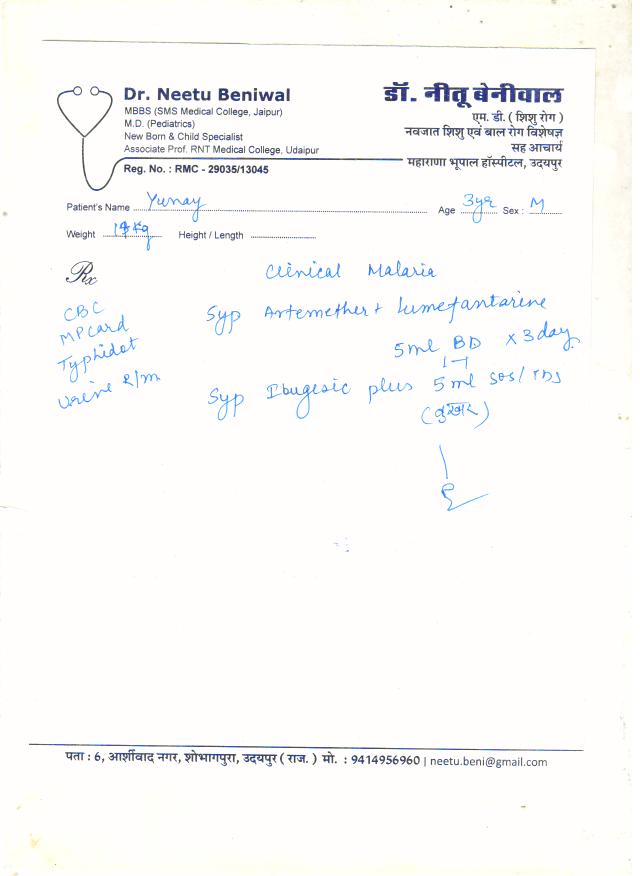 Dr. Neetu Beniwal
MBBS (SMS Medical College, Jaipur)
M.D. (Pediatrics)
New Born & Child Specialist
Associate Prof. RNT Medical College, Udaipur
Reg. No. : RMC - 29035/13045
डॉ. नीतू बेनीवाल
एम. डी. ( शिशु रोग )
नवजात शिशु एवं बाल रोग विशेषज्ञ
सह आचार्य
महाराणा भूपाल हॉस्पीटल, उदयपुर
Patient's Name Yunay Age 3yr Sex : M
Weight kg Height / Length
Rx
Clinical Malaria
CBC
MPcard
Typhidot
Urine R/m
Syp Artemether + Lumefantarine
5ml BD x 3day
1-1
Syp Ibugesic plus 5 ml sos/TDS
(बुखार)
पता : 6, आर्शीवाद नगर, शोभागपुरा, उदयपुर ( राज. ) मो. : 9414956960 | neetu.beni@gmail.com